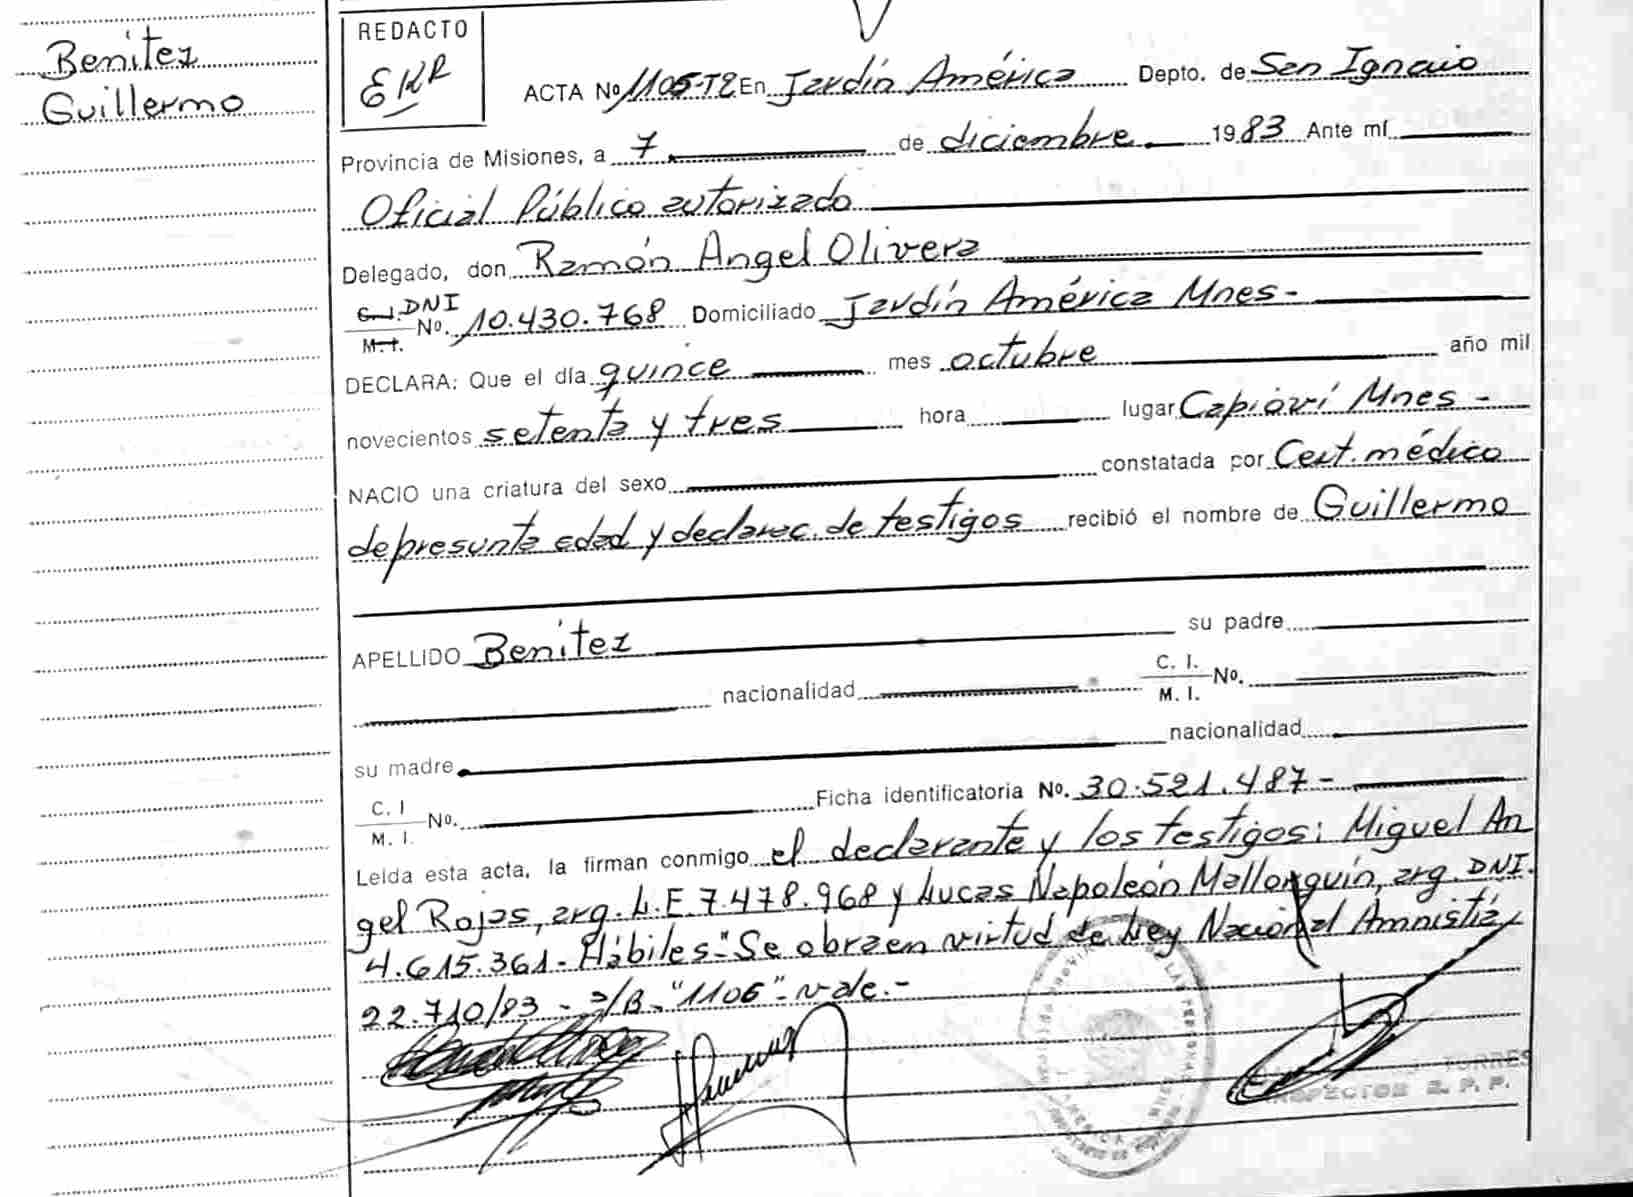 Benítez
Guillermo
REDACTO
EKR
ACTA Nº 1105-T2 En Jardín América Depto. de San Ignacio
Provincia de Misiones, a 7 de diciembre 1983 Ante mí
Oficial Público autorizado
Delegado, don Ramón Angel Olivera
C.I. DNI
M.I. Nº. 10.430.768 Domiciliado Jardín América Mnes-
DECLARA: Que el día quince mes octubre año mil
novecientos setenta y tres hora lugar Capioví Mnes -
NACIO una criatura del sexo constatada por Cert. médico
de presunta edad y declarac. de testigos recibió el nombre de Guillermo
APELLIDO Benítez su padre
nacionalidad C. I. M. I. Nº.
su madre nacionalidad
C. I M. I. Nº. Ficha identificatoria Nº. 30.521.487-
Leída esta acta, la firman conmigo el declarante y los testigos: Miguel An
gel Rojas, arg. L.E. 7.478.968 y Lucas Napoleón Mallorquín, arg. DNI.
4.615.361- Hábiles-"Se obra en virtud de Ley Nacional Amnistía
22.710/83 - s/B-"1106"- vale.-
TORRES
INSPECTOR R. P. P.